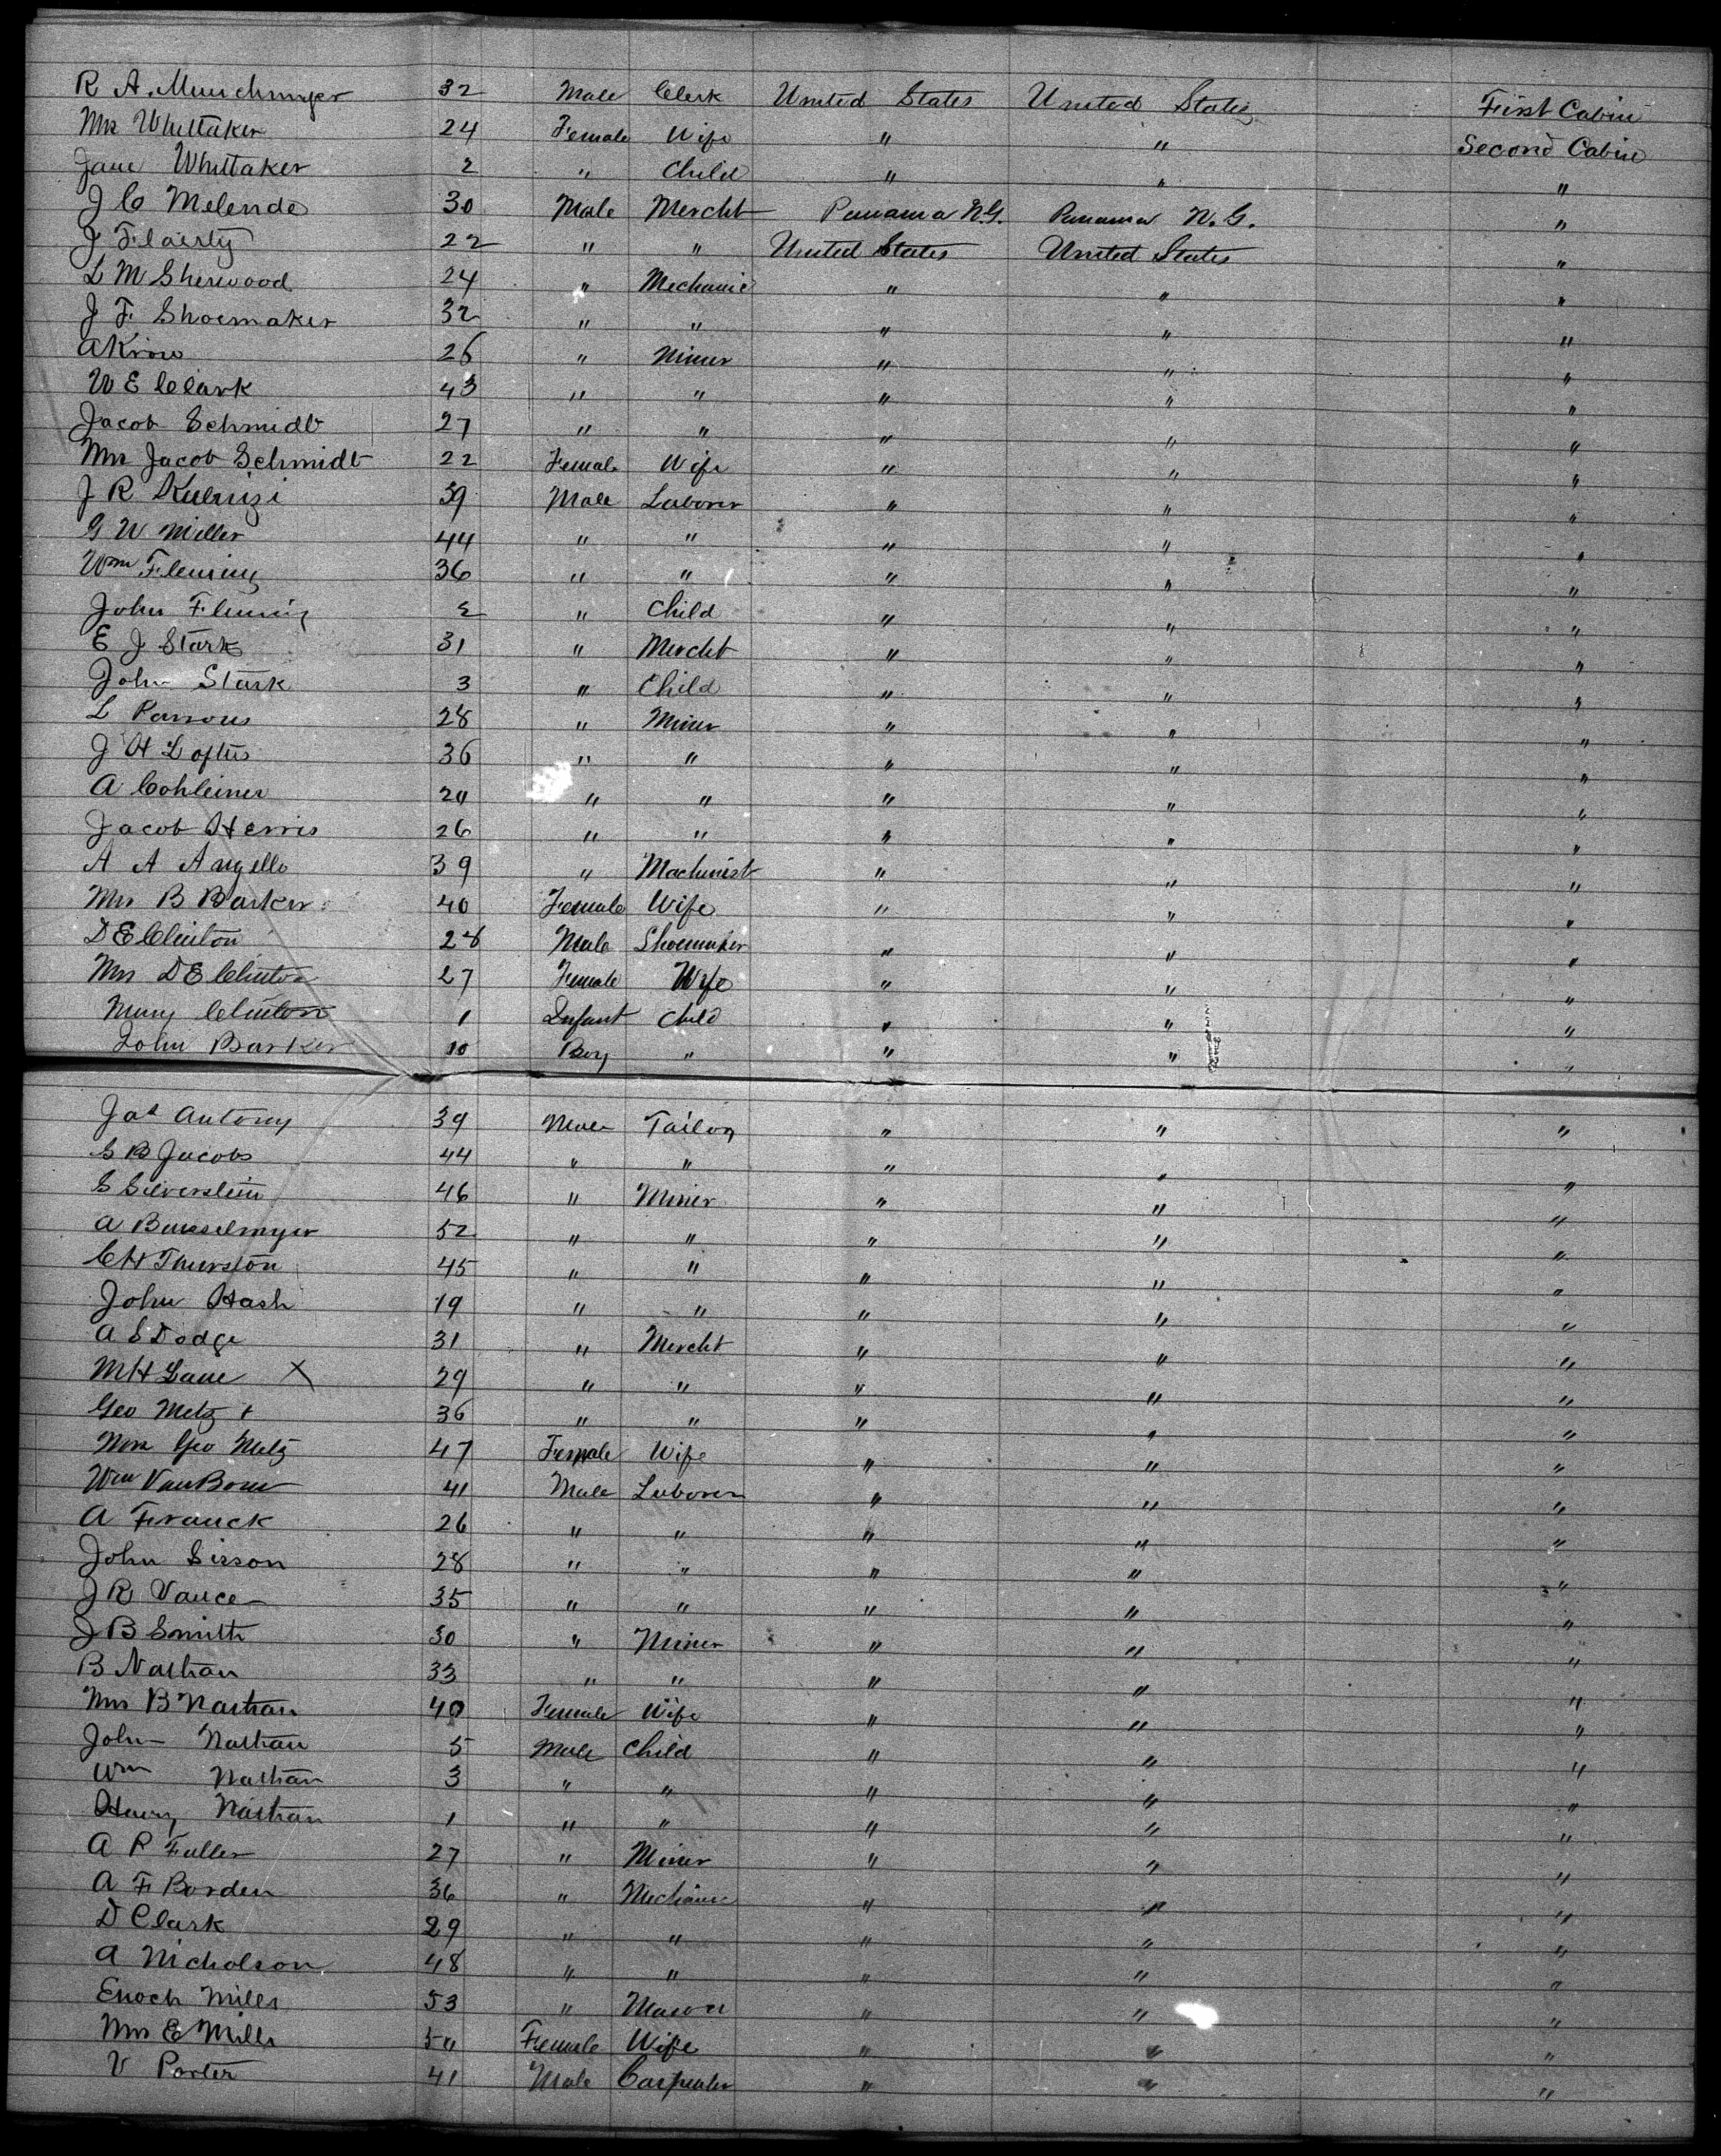 R A. Munchmyer 32 Male Clerk United States United States First Cabin
Mrs Whittaker 24 Female Wife " " Second Cabin
Jane Whittaker 2 " Child " " "
J C Melende 30 Male Mercht Panama N.G. Panama N.G. "
J Flaisty 22 " " United States United States "
L M Sherwood 24 " Mechanic " " "
J F Shoemaker 32 " " " " "
A Krow 26 " Miner " " "
W E Clark 43 " " " " "
Jacob Schmidt 27 " " " " "
Mrs Jacob Schmidt 22 Female Wife " " "
J R 39 Male Laborer " " "
G W Miller 44 " " " " "
Wm Fleming 36 " " " " "
John Fleming 2 " Child " " "
E J Stark 31 " Mercht " " "
John Stark 3 " Child " " "
L Parsons 28 " Miner " " "
J H Loftus 36 " " " " "
A Cohleiner 20 " " " " "
Jacob Herris 26 " " " " "
A A Angello 39 " Machinist " " "
Mrs B Barker 40 Female Wife " " "
D E Clinton 28 Male Shoemaker " " "
Mrs D E Clinton 27 Female Wife " " "
Mary Clinton 1 Infant Child " " "
John Barker 10 Boy " " " "
Jas Antony 39 Male Tailor " " "
S B Jacobs 44 " " " " "
S Silverstein 46 " Miner " " "
A Busselmyer 52 " " " " "
C H Thurston 45 " " " " "
John Hash 19 " " " " "
A S Dodge 31 " Mercht " " "
M H Lane X 29 " " " " "
Geo Metz + 36 " " " " "
Mrs Geo Metz 47 Female Wife " " "
Wm VanBorn 41 Male Laborer " " "
A Franck 26 " " " " "
John Sisson 28 " " " " "
J R Vance 35 " " " " "
J B Smith 30 " Miner " " "
B Nathan 33 " " " " "
Mrs B Nathan 40 Female Wife " " "
John Nathan 5 Male Child " " "
Wm Nathan 3 " " " " "
Henry Nathan 1 " " " " "
A P Fuller 27 " Miner " " "
A F Borden 36 " Mechanic " " "
D Clark 29 " " " " "
A Nicholson 48 " " " " "
Enoch Mills 53 " Mason " " "
Mrs E Mills 50 Female Wife " " "
V Porter 41 Male Carpenter " " "